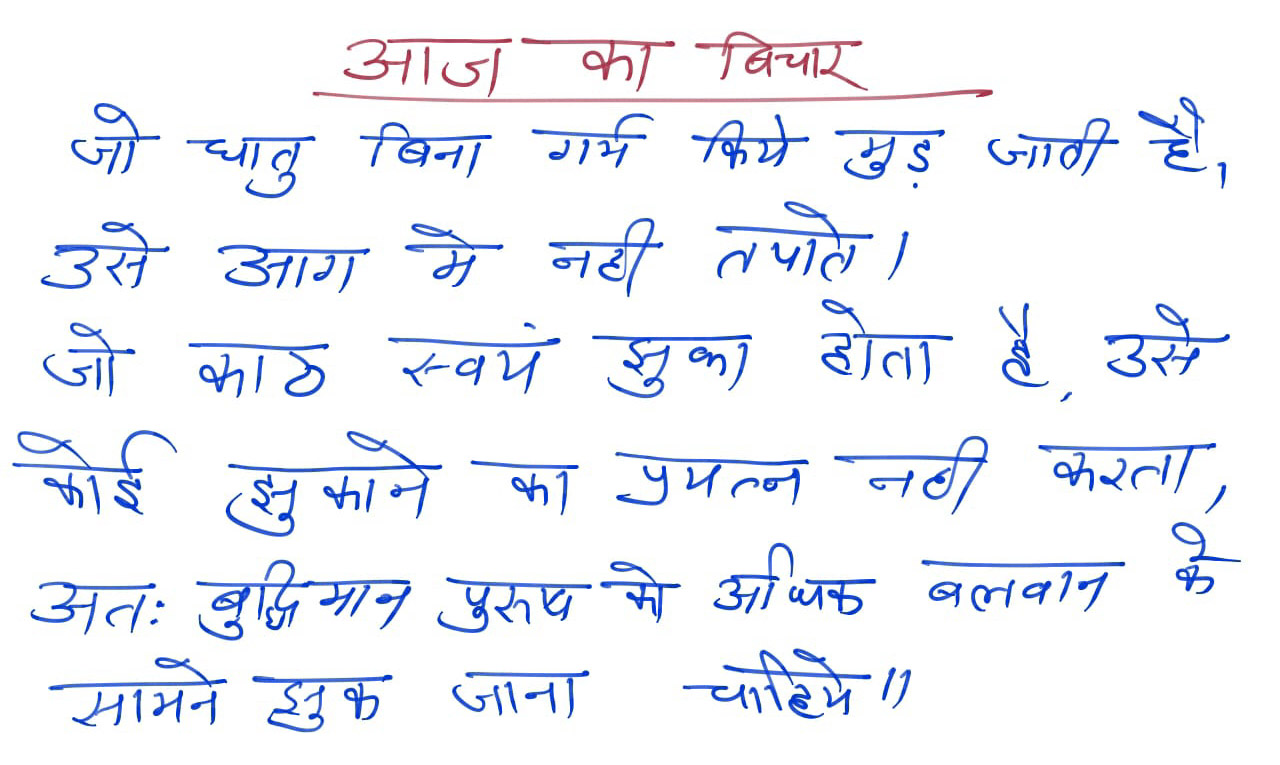 आज का बिचार
जो धातु बिना गर्म किये मुड़ जाती है,
उसे आग मे नही तपाते।
जो काठ स्वयं झुका होता है, उसे
कोई झुकाने का प्रयत्न नही करता,
अतः बुद्धिमान पुरुष को अधिक बलवान के
सामने झुक जाना चाहिये॥